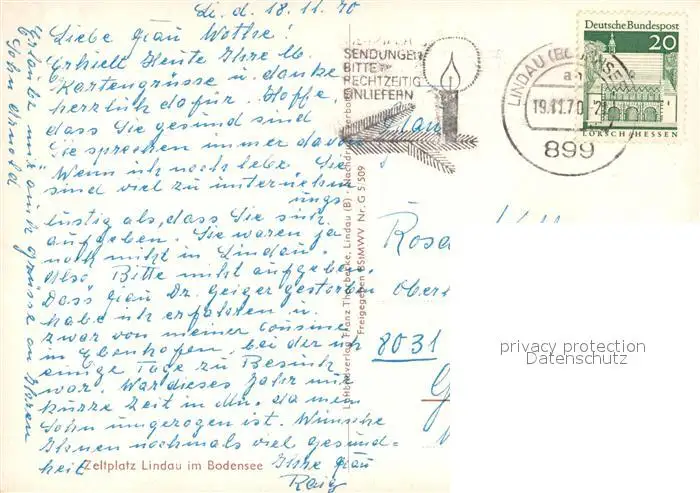 Li. d. 18.11.70
Liebe Frau Wothe!
Erhielt Heute Ihre lb.
Kartengrüsse u. danke
herzlich dafür. Hoffe,
dass Sie gesund sind
Sie sprechen immer davon
Wenn ich noch lebe. Sie
sind viel zu unternehm
ungs
lustig als, dass Sie sich
aufgeben. Sie waren ja
noch nicht in Lindau
Also Bitte nicht aufgeben.
Dass Frau Dr. Geiger gestorben
habe ich erfahren u.
zwar von meiner Cousine
in Ebenhofen, bei der ich
einige Tage zu Besuch
war. War dieses Jahr nur
kurze Zeit in Mü. da mein
Sohn umgezogen ist. Wünsche
Ihnen nochmals viel gesund=
heit Ihre Frau
Raig
Zeltplatz Lindau im Bodensee
Luftbildverlag Franz Thorbecke, Lindau (B)
Freigegeben BStMWV Nr. G 5/509
SENDUNGEN
BITTE
RECHTZEITIG
EINLIEFERN
LINDAU (BODENSEE)
19.11.70
899
Deutsche Bundespost
20
LORSCH/HESSEN
Rosa
Obers
8031
privacy protection
Datenschutz